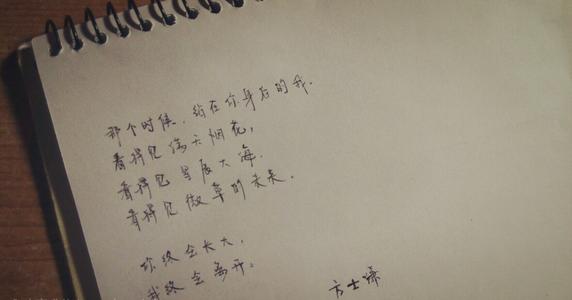 那个时候,站在你身后的我.
看得见满天烟花,
看得见星辰大海.
看得见微草的未来.
你终会长大,
我终会离开。
方士谦